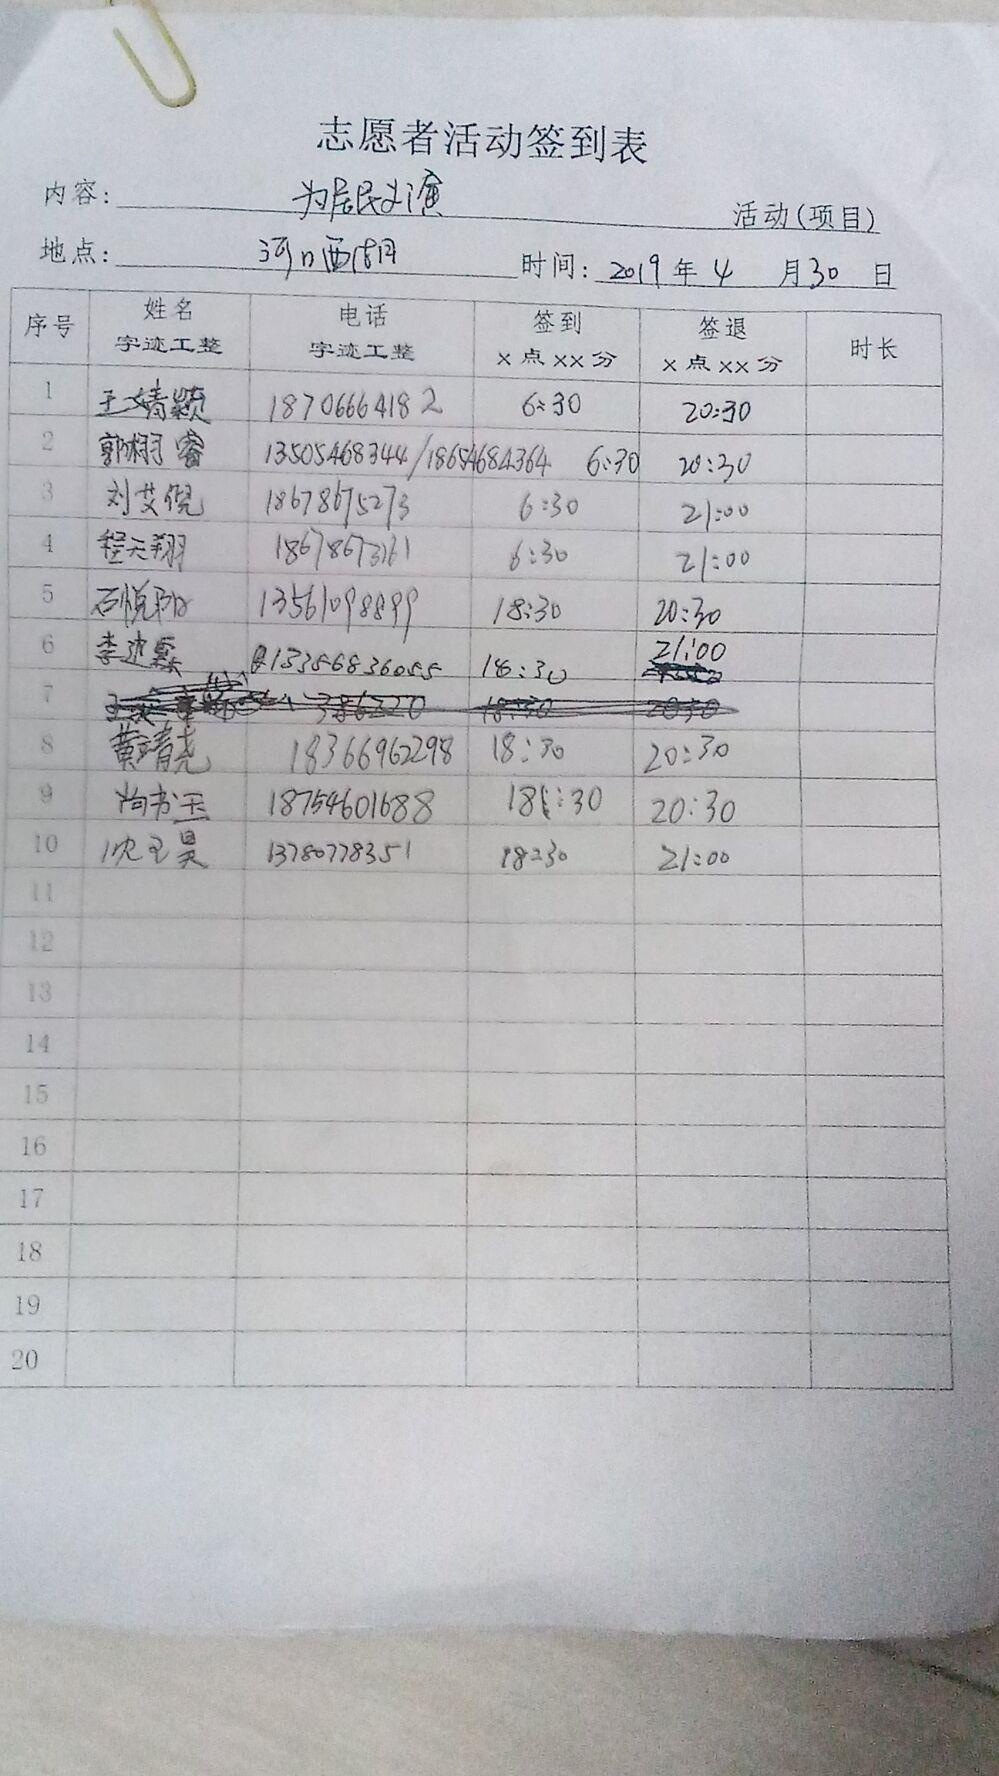 志愿者活动签到表
内容: 为居民义演 活动(项目)
地点: 河口西湖 时间: 2019 年 4 月 30 日
序号 姓名 字迹工整 电话 字迹工整 签到 x 点 xx 分 签退 x 点 xx 分 时长
1 王婧颖 18706664182 6:30 20:30
2 郭栩睿 13505468344/18654684364 6:30 20:30
3 刘艾倪 18678675273 6:30 21:00
4 程天翔 6:30 21:00
5 石悦阳 13561098899 18:30 20:30
6 15356836055 18:30 21:00
7 386220 18:30 2030
8 黄靖尧 18366962298 18:30 20:30
9 尚书玉 18754601688 18:30 20:30
10 沈玉昊 13780778351 18:30 21:00
11
12
13
14
15
16
17
18
19
20